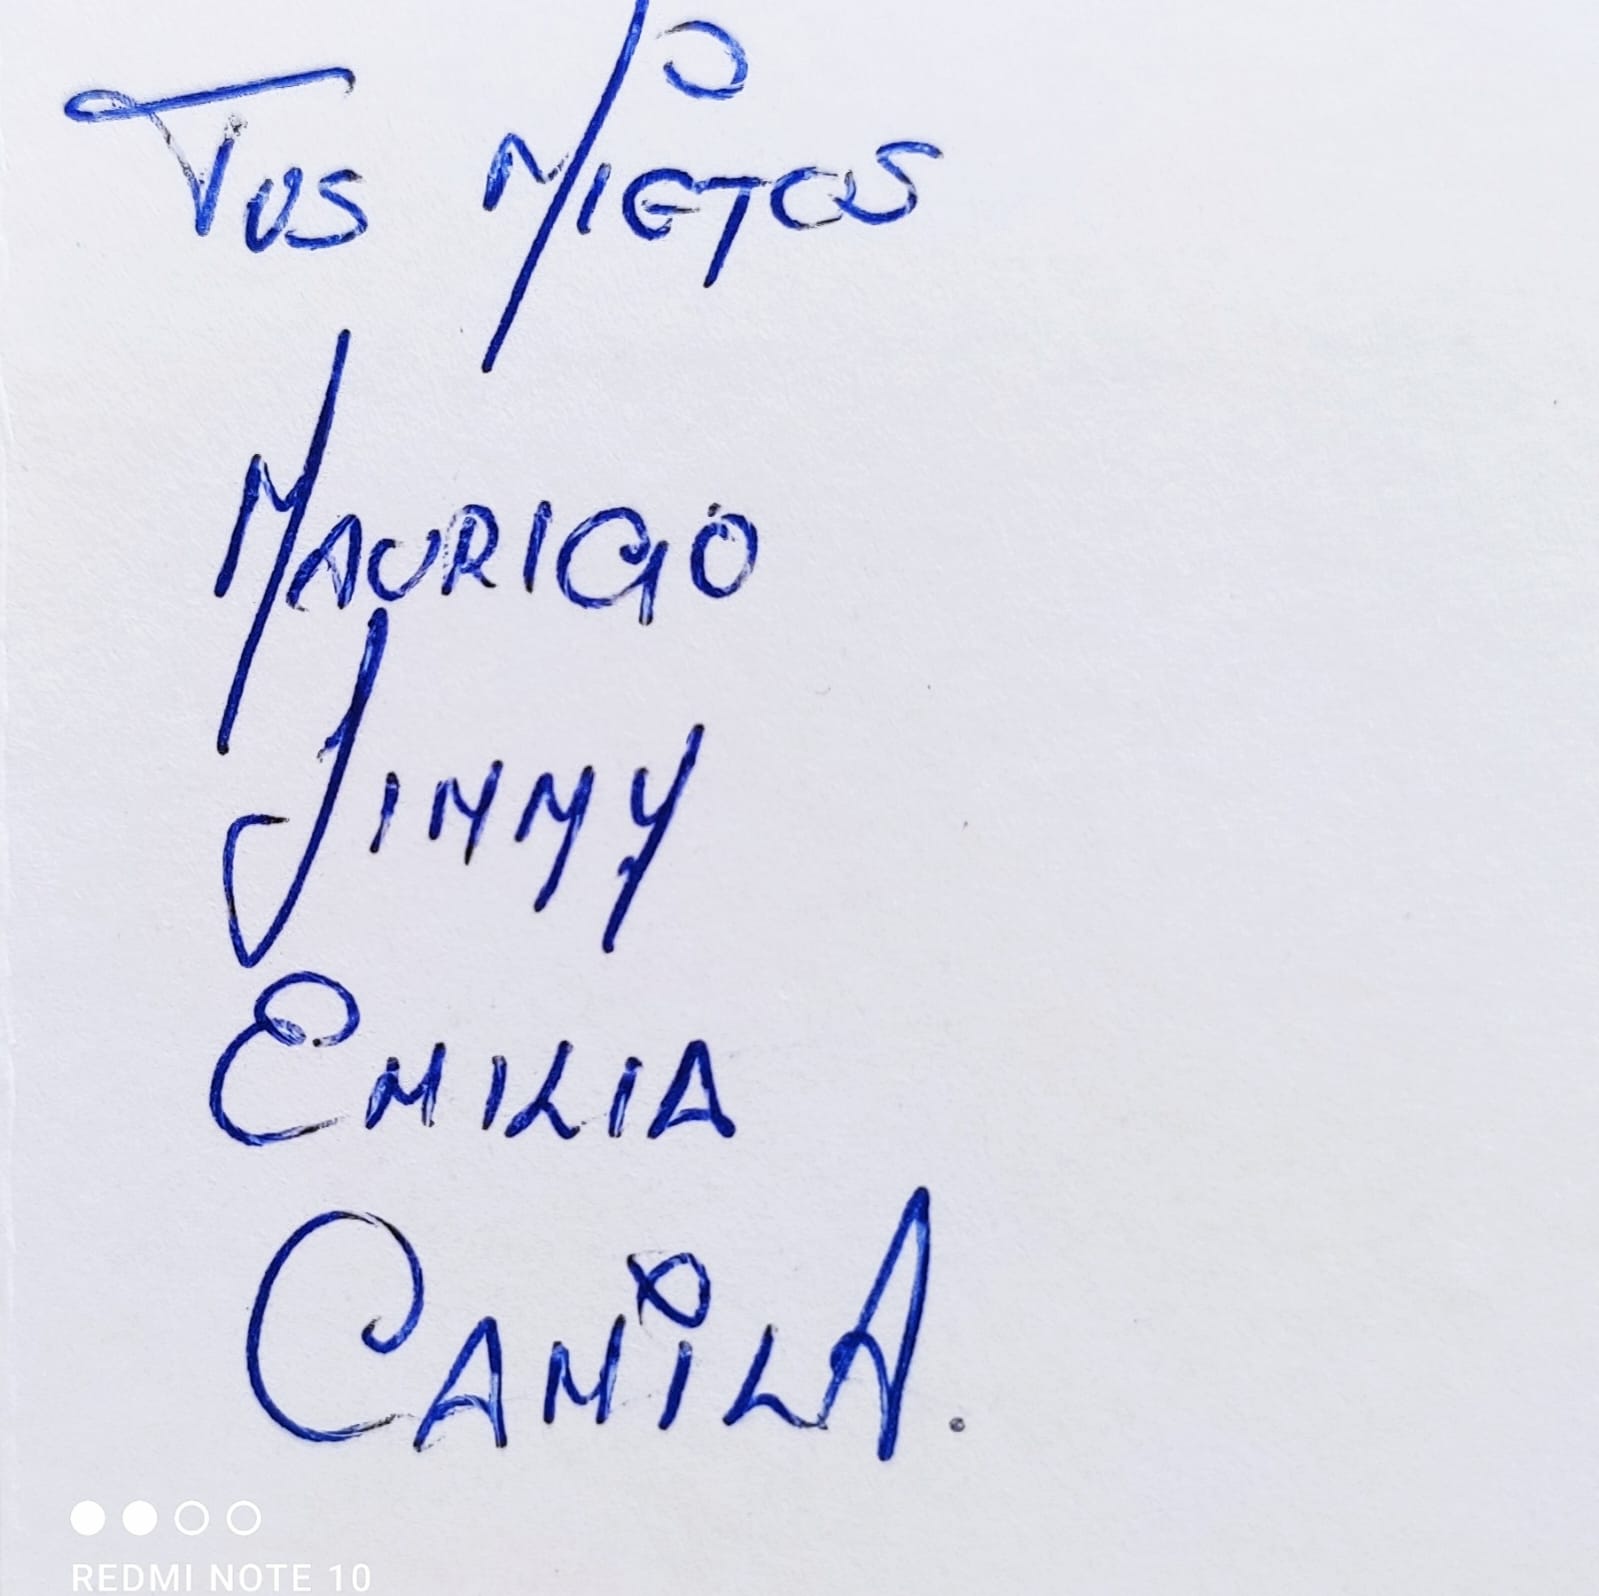 TUS NIETOS
MAURICIO
JIMMY
EMILIA
CAMILA.
REDMI NOTE 10